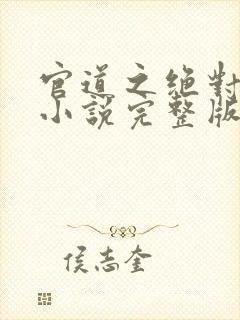 官道之絕對
小說完整版
侯志奎